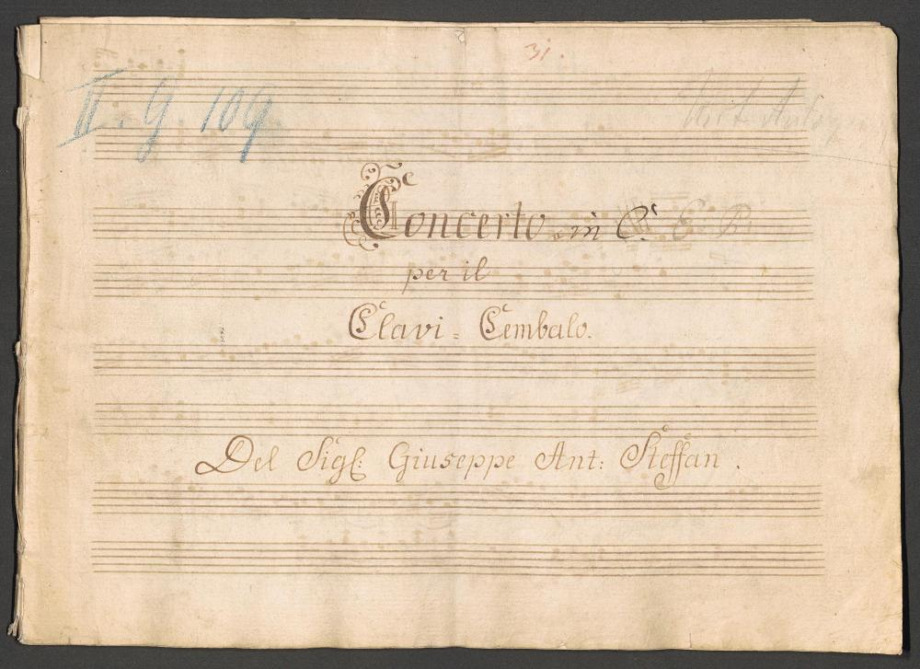 31.
II. g. 109
Concerto in C.
per il
Clavi = Cembalo.
Del Sigl: Giuseppe Ant: Steffan.